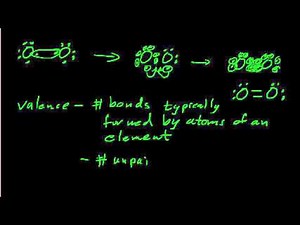 :O O: → O O → O O
:O=O:
valence - # bonds typically
formed by atoms of an
element
- # unpai